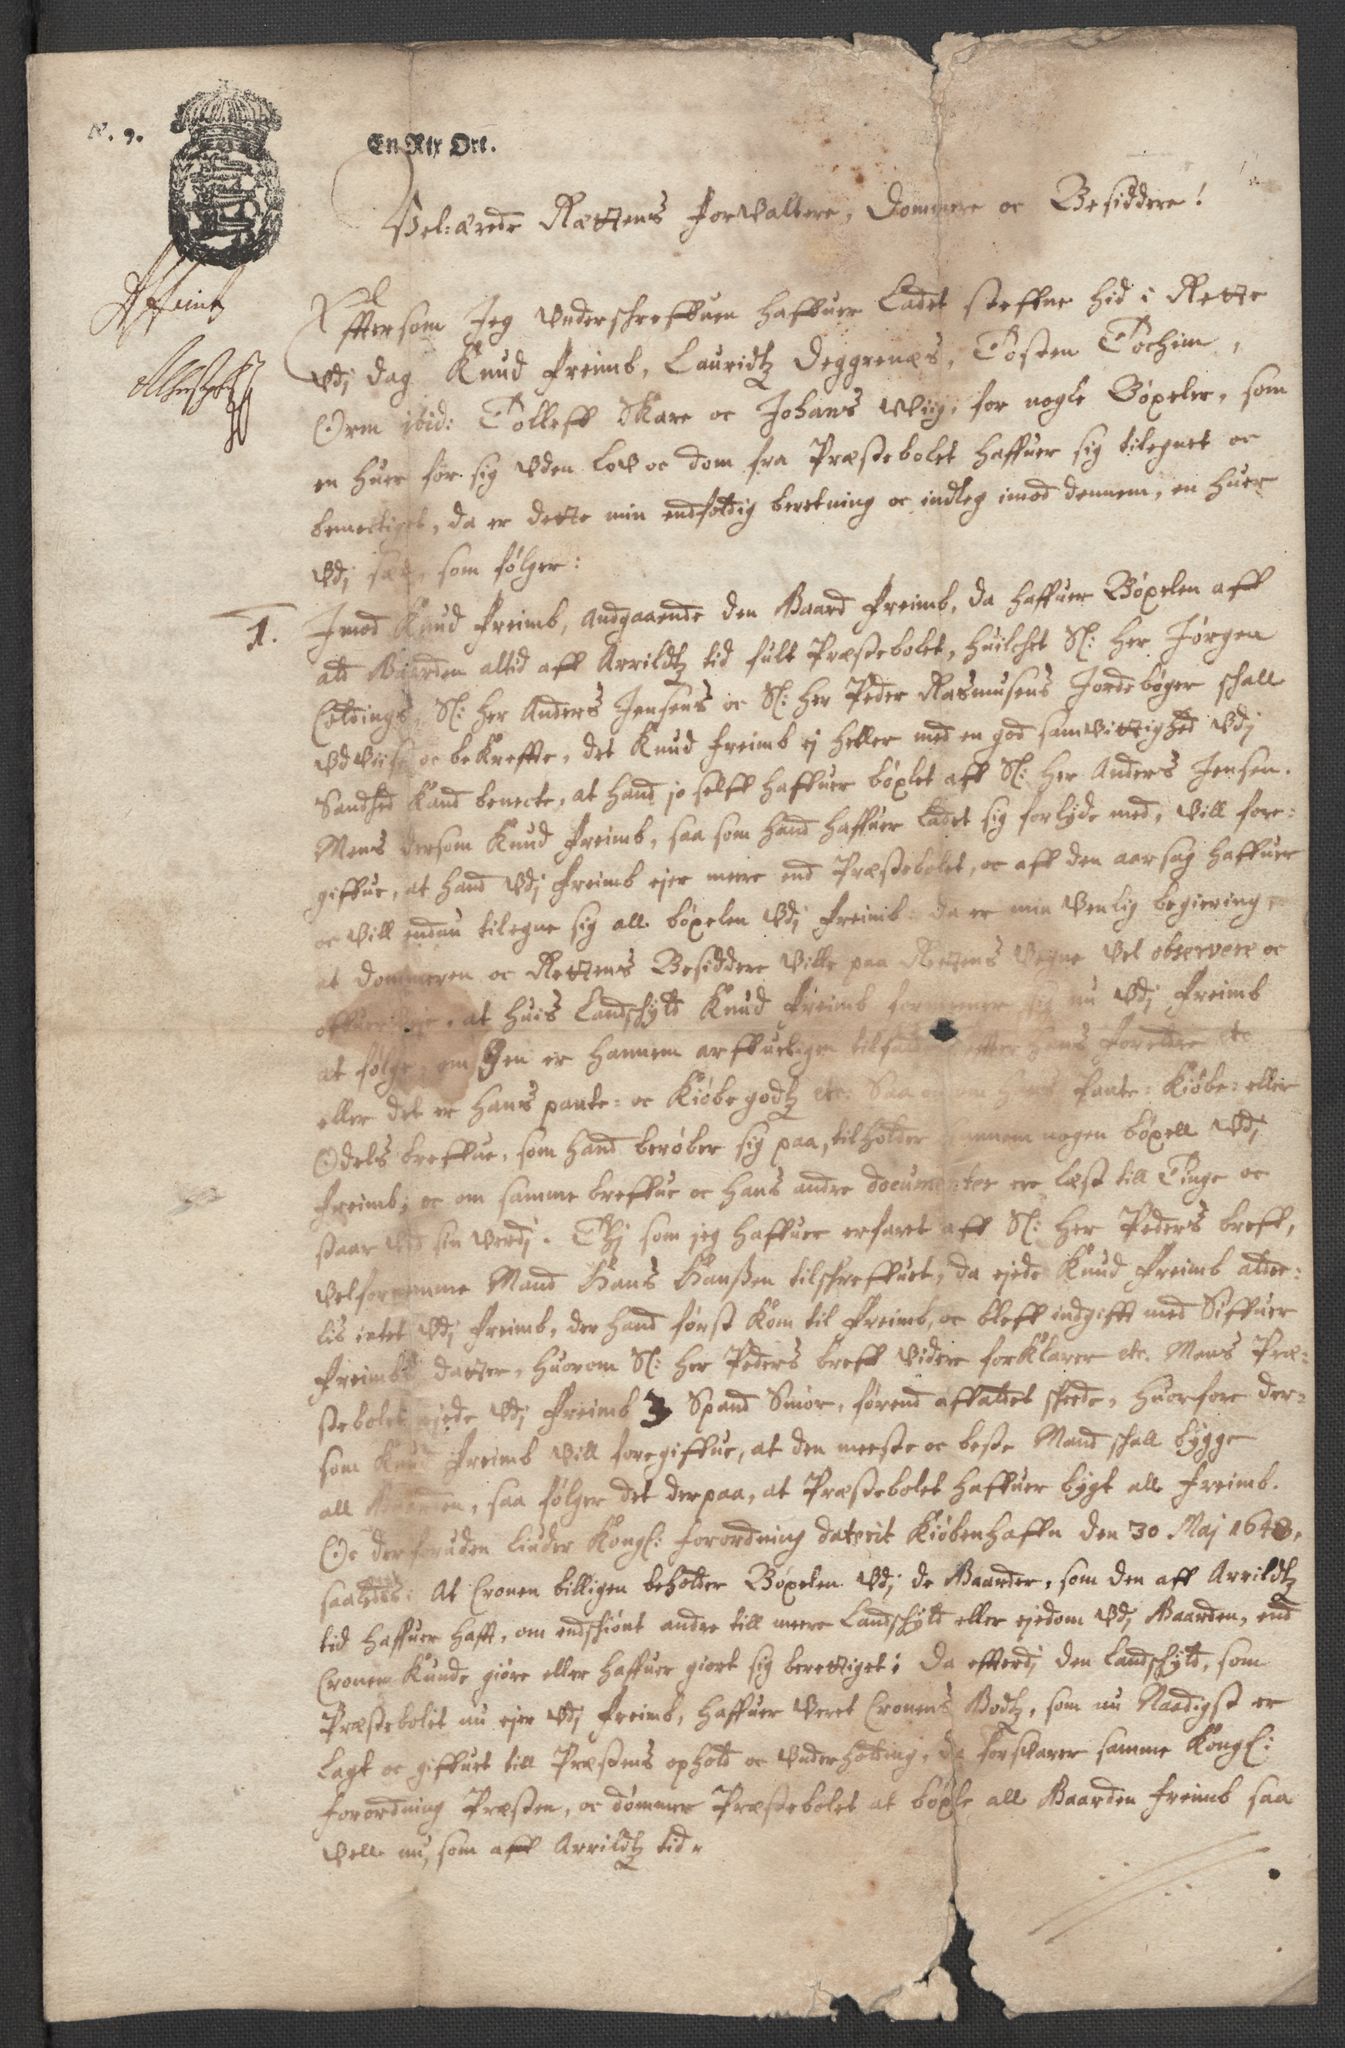 N. 9.
En Rix Ort.
Vel: ærede Rættens Forvaltere, Dommere oc Besiddere!
Effter som Jeg underschreffuen haffuer Ladet steffne hid i Rette
udj dag Knud Freimb, Lauridtz Deggrenæs, Tosten Tochim,
Orm ibid: Tolleff Skare oc Johans Wiig, for nogle Böxeler, som
en huer for sig uden Lov oc dom fra Præstebolet haffuer sig tilegnet oc
bemectiget, da er dette min endfoldig beretning oc indleg imod dennem, en huer
udj sær, som følger:
1. Imod Knud Freimb, Andgaaende den Gaard Freimb, da haffuer Böxelen aff
ald Gaarden altid aff Arrildtz tid fult Præstebolet, huilchet Sl: Her Jørgen
Coldings, Sl: Her Anders Jensens oc Sl: Her Peder Rasmusens Jordebøger schall
udviise oc bekreffte, det Knud Freimb ej heller med en god samvittighed udj
Sandhed kand benecte, at hand jo selff haffuer böxlet aff Sl: Her Anders Jensen.
Mens dersom Knud Freimb, saa som hand haffuer Ladet sig forlyde med, vill fore-
giffue, at hand udj Freimb ejer meere end Præstebolet, oc aff den aarsag haffuer
oc vill endnu tilegne sig all böxelen udj Freimb: da er min venlig begiering,
at dommeren oc Rettens Besiddere ville paa Rettens Vegne vel observere oc
at huis Landschyld Knud Freimb nu udj Freimb
at følge, om den er hannem arffueligen effter hans Foreldre etc
eller det er hans pante- oc Kiøbegodtz etc. Saa hans Pante- Kiøbe- eller
Odels breffue, som hand berober sig paa, tilholder hannem nogen böxell udj
Freimb, oc om samme breffue oc hans andre documenter ere læst till Tinge oc
staar ved sin verdj. Thj som jeg haffuer erfaret aff Sl: Her Peders breff,
velfornemme Mand Hans Hanßen tilschreffuet, da ejede Knud Freimb alde-
lis intet udj Freimb, der hand først kom til Freimb, oc bleff indgifft med Siffuer
Freimbs datter, huorom Sl: Her Peders breff videre forklarer etc. Mens Præ-
stebolet ejede udj Freimb 3 Spand Smør, førend affaldet skede, huorfore der-
som Knud Freimb vill foregiffue, at den meeste oc beste Mand schall bygge
all Gaarden, saa følger det derpaa, at Præstebolet haffuer bygt all Freimb.
Oc derforuden liuder Kongl: forordning daterit Kiøbenhaffn den 30 Maj 1648,
saaledes: At Cronen billigen beholder Böxelen udj de Gaarder, som den aff Arrildtz
tid haffuer hafft, om endschiønt andre till meere Landschyld eller ejedom udj Gaarden, end
Cronen kunde giøre eller haffuer giort sig berettiget; Da efterdj den Landschyld, som
Præstebolet nu ejer udj Freimb, haffuer veret Cronens Godtz, som nu Naadigst er
Lagt oc giffuet till Præstens ophold oc underholding, da forsvarer samme Kongl:
forordning Præsten, oc dømmer Præstebolet at böxle all Gaarden Freimb saa
vell nu, som aff Arrildtz tid.